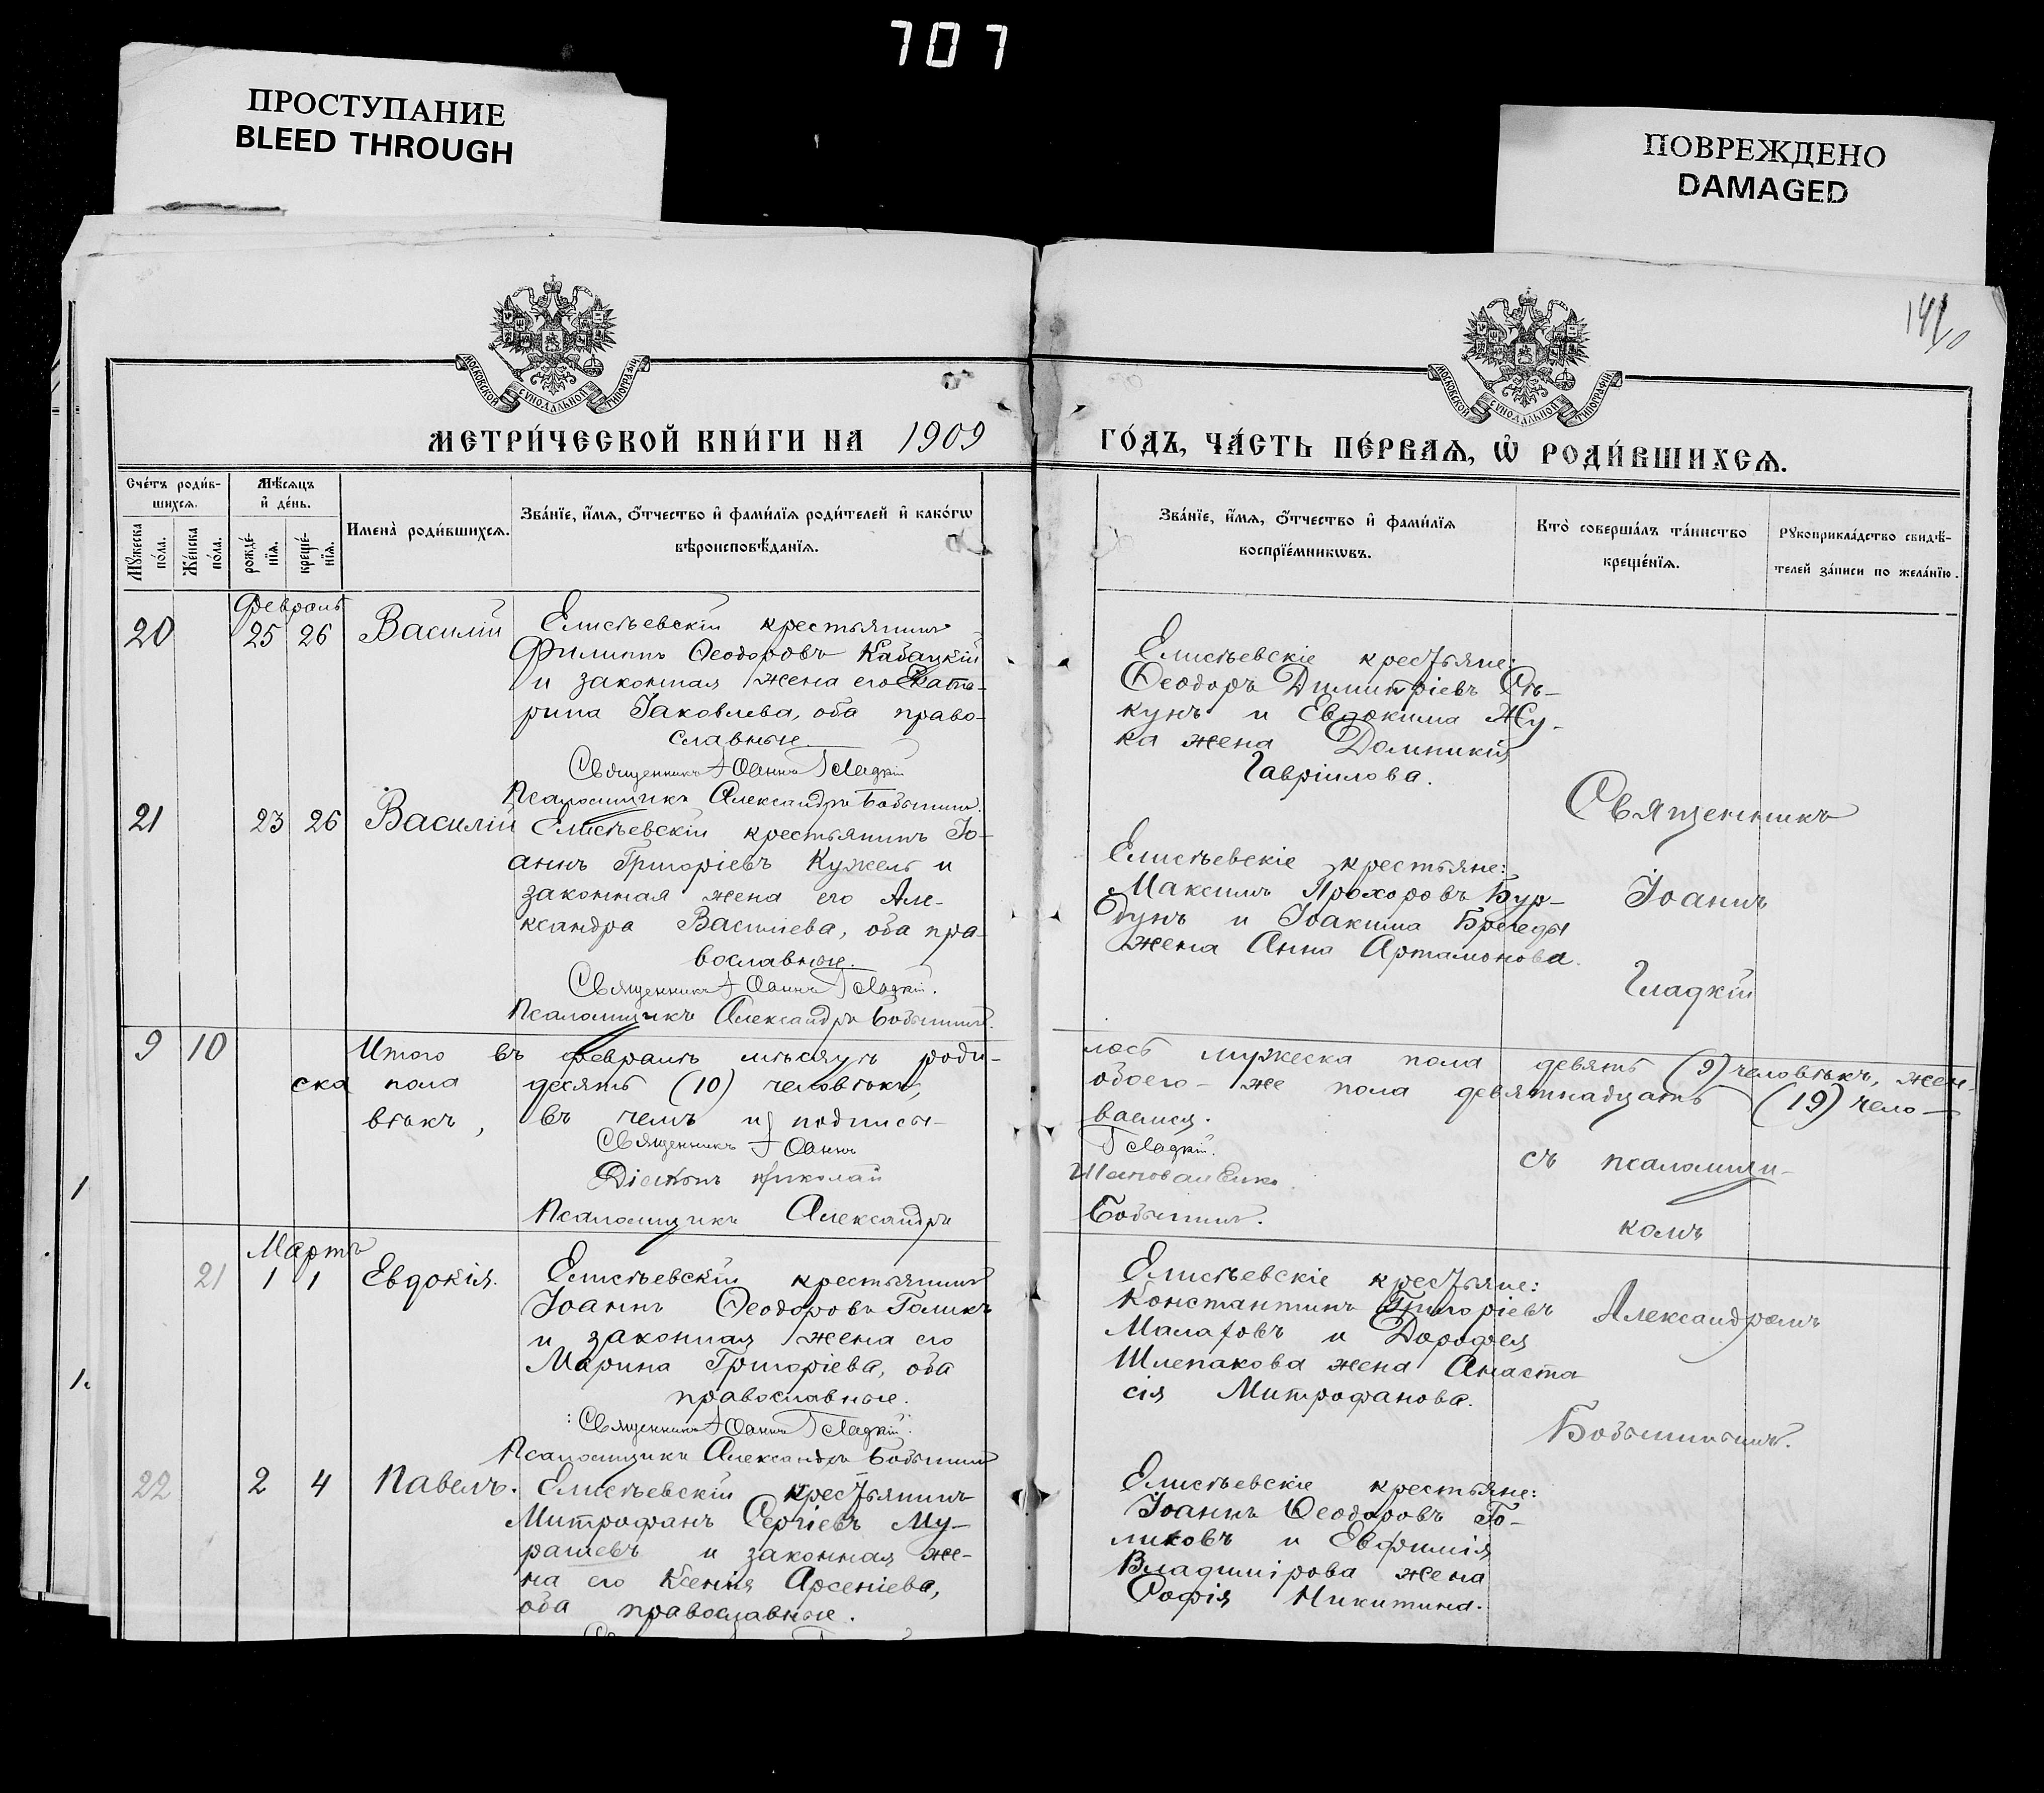 707
ПРОСТУПАНИЕ
BLEED THROUGH
ПОВРЕЖДЕНО
DAMAGED
МОСКОВСКОЙ СУНОДАЛЬНОЙ ТИПОГРАФІИ
МОСКОВСКОЙ СУНОДАЛЬНОЙ ТИПОГРАФІИ
МЕТРИ́ЧЕСКОЙ КНИ́ГИ НА 1909
ГО́ДЪ, ЧА́СТЬ ПЕ́РВАѦ, Ѡ҆ РОДИ́ВШИХСѦ.
Сче́тъ роди́в-
шихсѧ.
Мꙋ́жеска по́ла.
Же́нска по́ла.
Мѣ́сѧцъ
и҆ де́нь.
рожде́-
нїѧ.
креще́-
нїѧ.
Имена̀ роди́вшихсѧ.
Зва́нїе, и҆́мѧ, ѻ҆́тчество и҆ фами́лїѧ роди́телей и҆ како́гѡ
вѣроисповѣ́данїѧ.
Зва́нїе, и҆́мѧ, ѻ҆́тчество и҆ фами́лїѧ
воспрїе́мникѡвъ.
Кто̀ соверша́лъ та́инство
креще́нїѧ.
Рꙋкоприкла́дство свидѣ́-
телей за́писи по жела́нїю.
Февраль
20 25 26 Василій
Елисѣевскій крестьянинъ
Филиппъ Ѳеодоровъ Кабацкій
и законная жена его Екате-
рина Іаковлева, оба право-
славные.
Священникъ Іоаннъ Гладкій
Псаломщикъ Александръ
Елисѣевскіе крестьяне:
Ѳеодоръ Димитріевъ
кунъ и Евдокима Жу-
ка жена Домникія
Гавріилова.
21 23 26 Василій
Елисѣевскій крестьянинъ Іо-
аннъ Григоріевъ Кужель и
законная жена его Але-
ксандра Василіева, оба пра-
вославные.
Священникъ Іоаннъ Гладкій.
Псаломщикъ Александръ
Елисѣевскіе крестьяне:
Максимъ Прохоровъ Бур-
дунъ и Іоакима
жена Анна Артамонова.
Священникъ
Іоаннъ
Гладкій
9 10 Итого въ февралѣ мѣсяцѣ роди-
лось мужеска пола девять (9) человѣкъ, жен-
ска пола десять (10) человѣкъ,
обоего-же пола девятнадцать (19) чело-
вѣкъ, въ чемъ и подписы-
ваемся.
Священникъ Іоаннъ
Гладкій.
Діаконъ Николай
Псаломщикъ Александръ
съ псаломщи-
комъ
Мартъ
21 1 1 Евдокія.
Елисѣевскій крестьянинъ
Іоаннъ Ѳеодоровъ Голикъ
и законная жена его
Марина Григоріева, оба
православные.
Священникъ Іоаннъ Гладкій.
Псаломщикъ Александръ
Елисѣевскіе крестьяне:
Константинъ Григоріевъ
Малаховъ и Дорофея
Шлепакова жена Анаста
сія Митрофанова.
Александромъ
22 2 4 Павелъ.
Елисѣевскій крестьянинъ
Митрофанъ Сергіевъ Му-
рашевъ и законная же-
на его Ксенія Арсеніева,
оба православные.
Елисѣевскіе крестьяне:
Іоаннъ Ѳеодоровъ Го-
ликовъ и Евфимія
Владимірова жена
Софія Никитина.